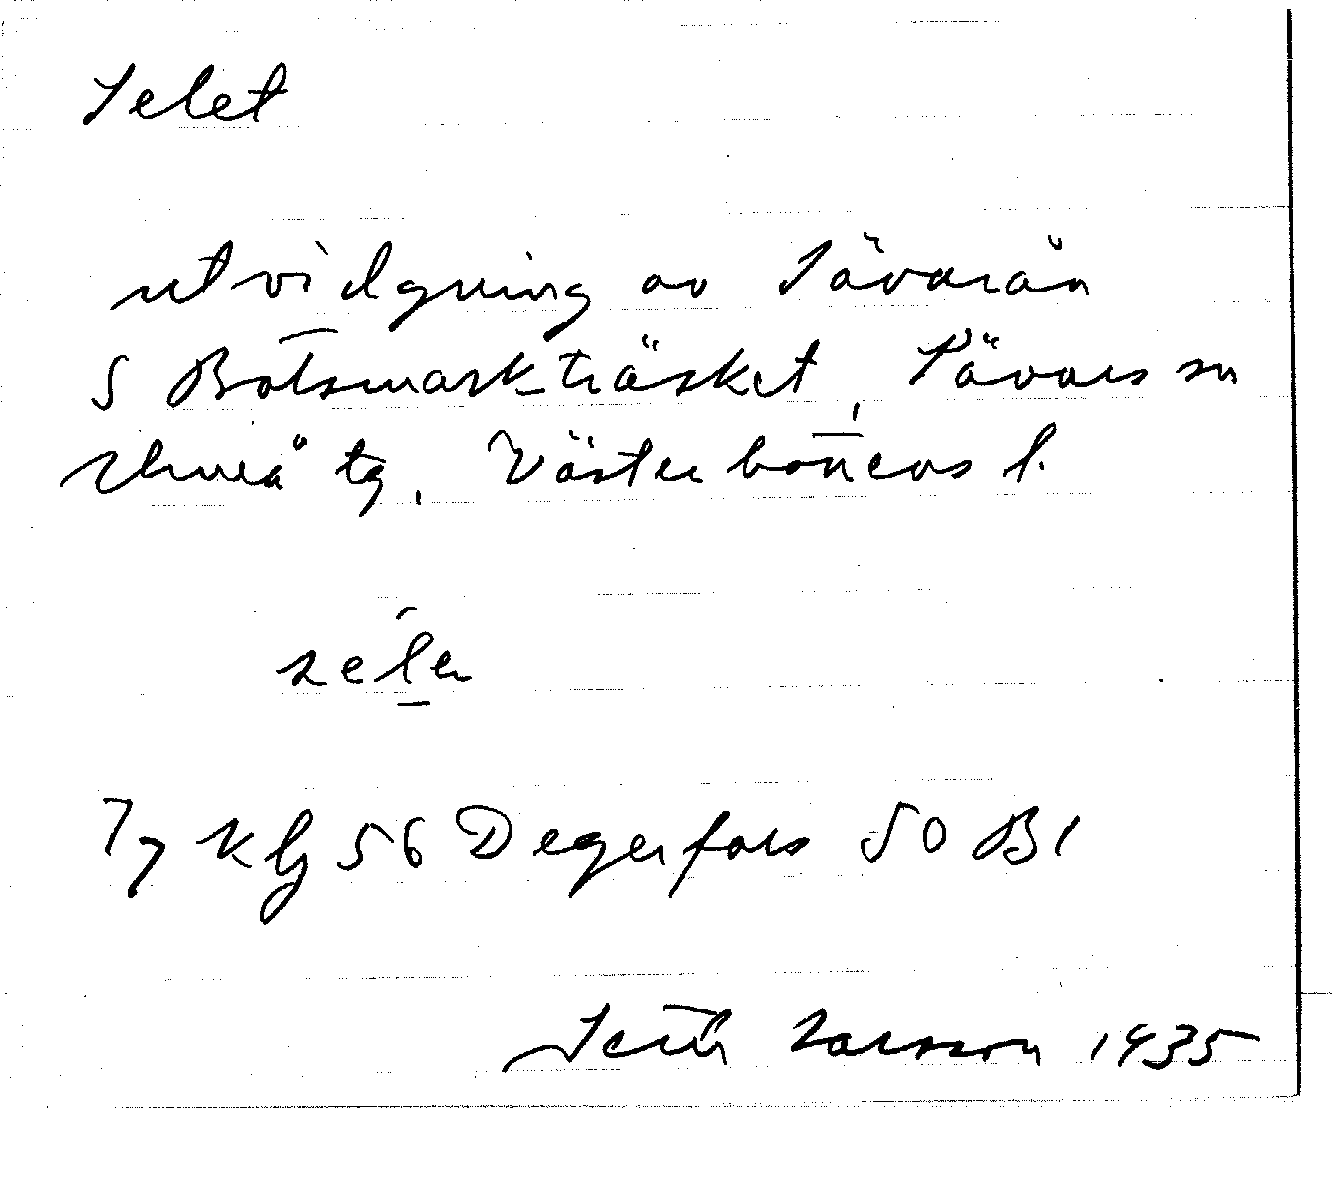 Selet
utvidgning av Sävarån
S Botsmarkträsket, Sävars sn
Umeå tg, Västerbottens l.
Ty Klg 56 Degerfors 50 B1
Seth Larsson 1935